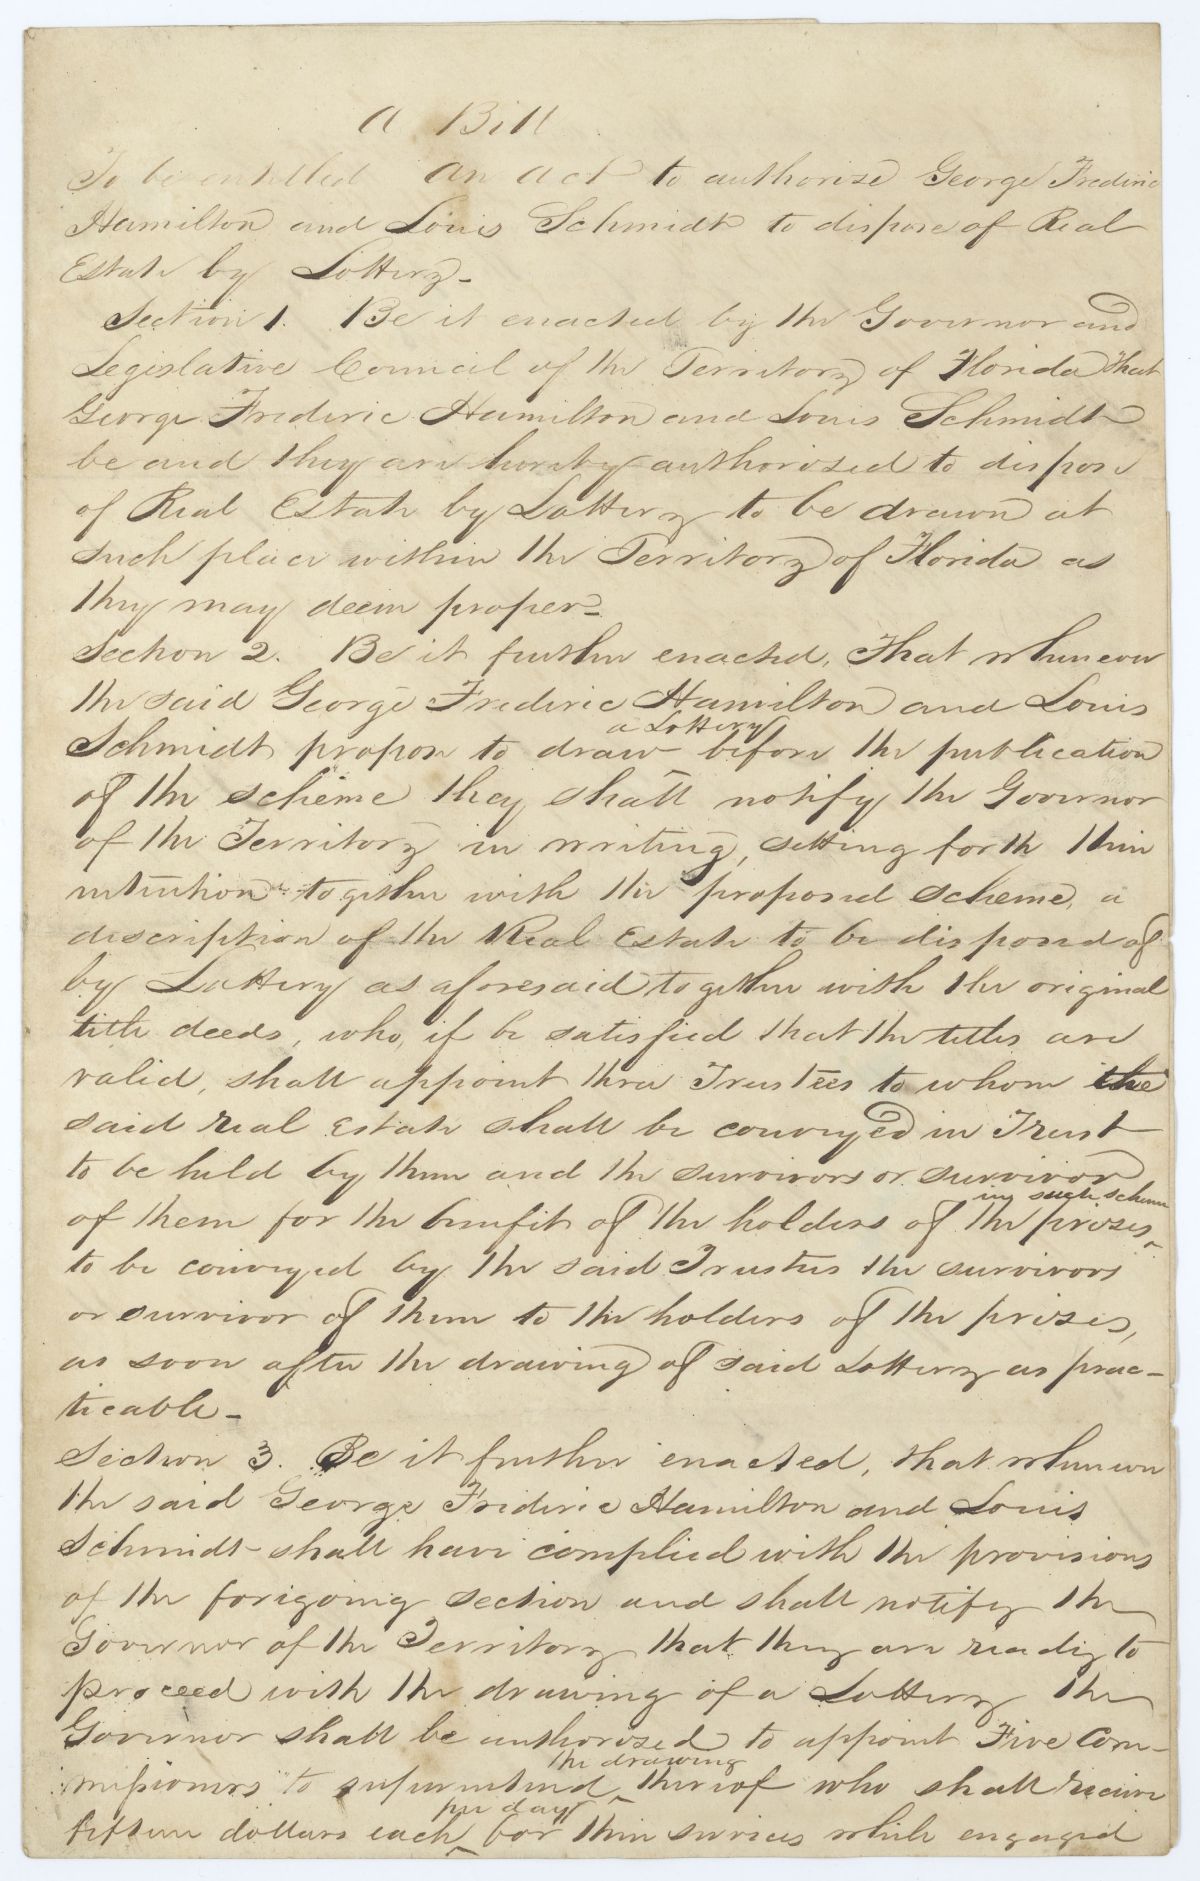 A Bill
To be entitled An act to authorise George Frederic
Hamilton and Louis Schmidt to dispose of Real
Estate by Lottery-
Section 1. Be it enacted by the Governor and
Legislative Council of the Territory of Florida That
George Frederic Hamilton and Louis Schmidt
be and they are hereby authorised to dispose
of Real Estate by Lottery to be drawn at
such place within the Territory of Florida as
they may deem proper-
Section 2. Be it further enacted, That whenever
the said George Frederic Hamilton and Louis
a Lottery
Schmidt propose to draw before the publication
of the scheme they shall notify the Governor
of the Territory in writing, setting forth their
intention together with the proposed scheme, a
description of the Real Estate to be disposed of
by Lottery as aforesaid together with the original
title deeds, who, if he satisfied that the titles are
valid, shall appoint three Trustees to whom the
said real Estate shall be conveyed in Trust
to be held by them and the survivors or survivor
in such scheme
of them for the benefit of the holders of the prizes,
to be conveyed by the said Trustees the survivors
or survivor of them to the holders of the prizes,
as soon after the drawing of said Lottery as prac-
ticable-
Section 3. Be it further enacted, that whenever
the said George Frederic Hamilton and Louis
Schmidt shall have complied with the provisions
of the foregoing section and shall notify the
Governor of the Territory that they are ready to
proceed with the drawing of a Lottery the
Governor shall be authorised to appoint Five Com-
the drawing
missioners to superintend ^ thereof who shall receive
per day
fifteen dollars each ^ for their services while engaged